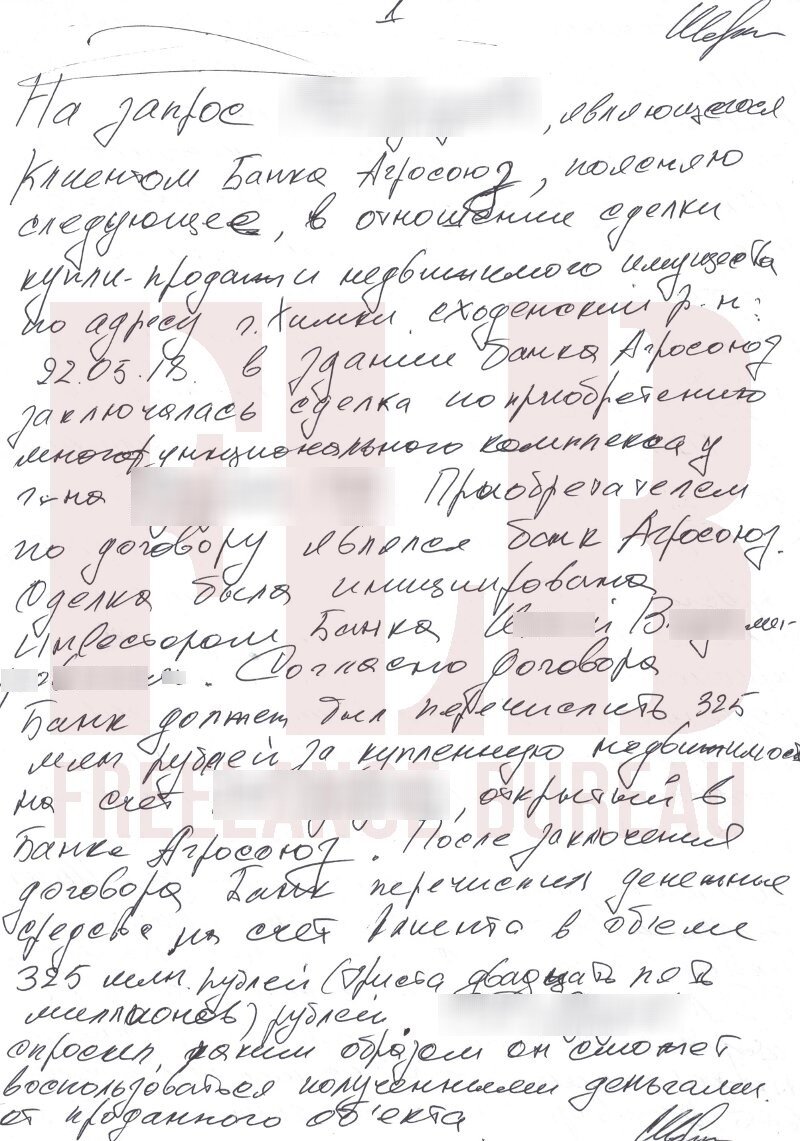 1
На запрос , являющегося
Клиентом Банка Агросоюз, поясняю
следующее, в отношении сделки
купли-продажи недвижимого имущества
по адресу г. Химки сходенский р-н:
22.05.18. в здании банка Агросоюз
заключалась сделка по приобретению
многофункционального комплекса у
г-на Приобретателем
по договору являлся банк Агросоюз.
Сделка была инициирована
Инвестором Банка
. Согласно договора
Банк должен был перечислить 325
млн рублей за купленную недвижимость
на счет , открытый в
Банке Агросоюз. После заключения
договора Банк перечислил денежные
средства на счет Клиента в объеме
325 млн. рублей (триста двадцать пять
миллионов) рублей.
спросил, каким образом он сможет
воспользоваться полученными деньгами.
от проданного объекта
FLB
FREELANCE BUREAU